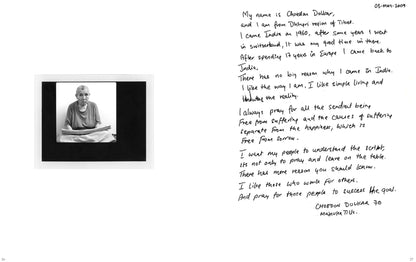 05-MAR-2009
My name is Choedon Dolkar,
and I am from Dhingri region of Tibet.
I came India in 1960, after some years I went
in switzerland, It was my good time in there.
After spending 17 year in Europe I came back to
India.
There has no big reason why I came in India.
I like the way I am. I like simple living and
the reality.
I always pray for all the sentient being
Free from suffering and the causes of suffering
separate from the happiness, which is
free from sorrow.
I want my people to understand the script,
Its not only to pray and leave on the table.
There has more reason you should know.
I like those who work for others.
And pray for those people to success the goal.
CHOEDON DOLKAR 70